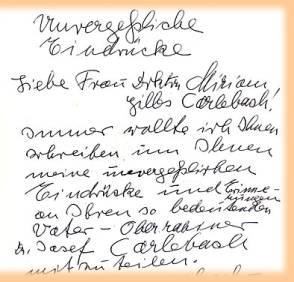 Unvergeßliche
Eindrücke
Liebe Frau Drktn Miriam
Gillis Carlebach!
Immer wollte ich Ihnen
schreiben um Ihnen
meine unvergeßlichen
Eindrücke und Erinne-
rungen
an Ihren so bedeutenden
Vater - Oberrabiner
Dr. Josef Carlebach
mitzuteilen.